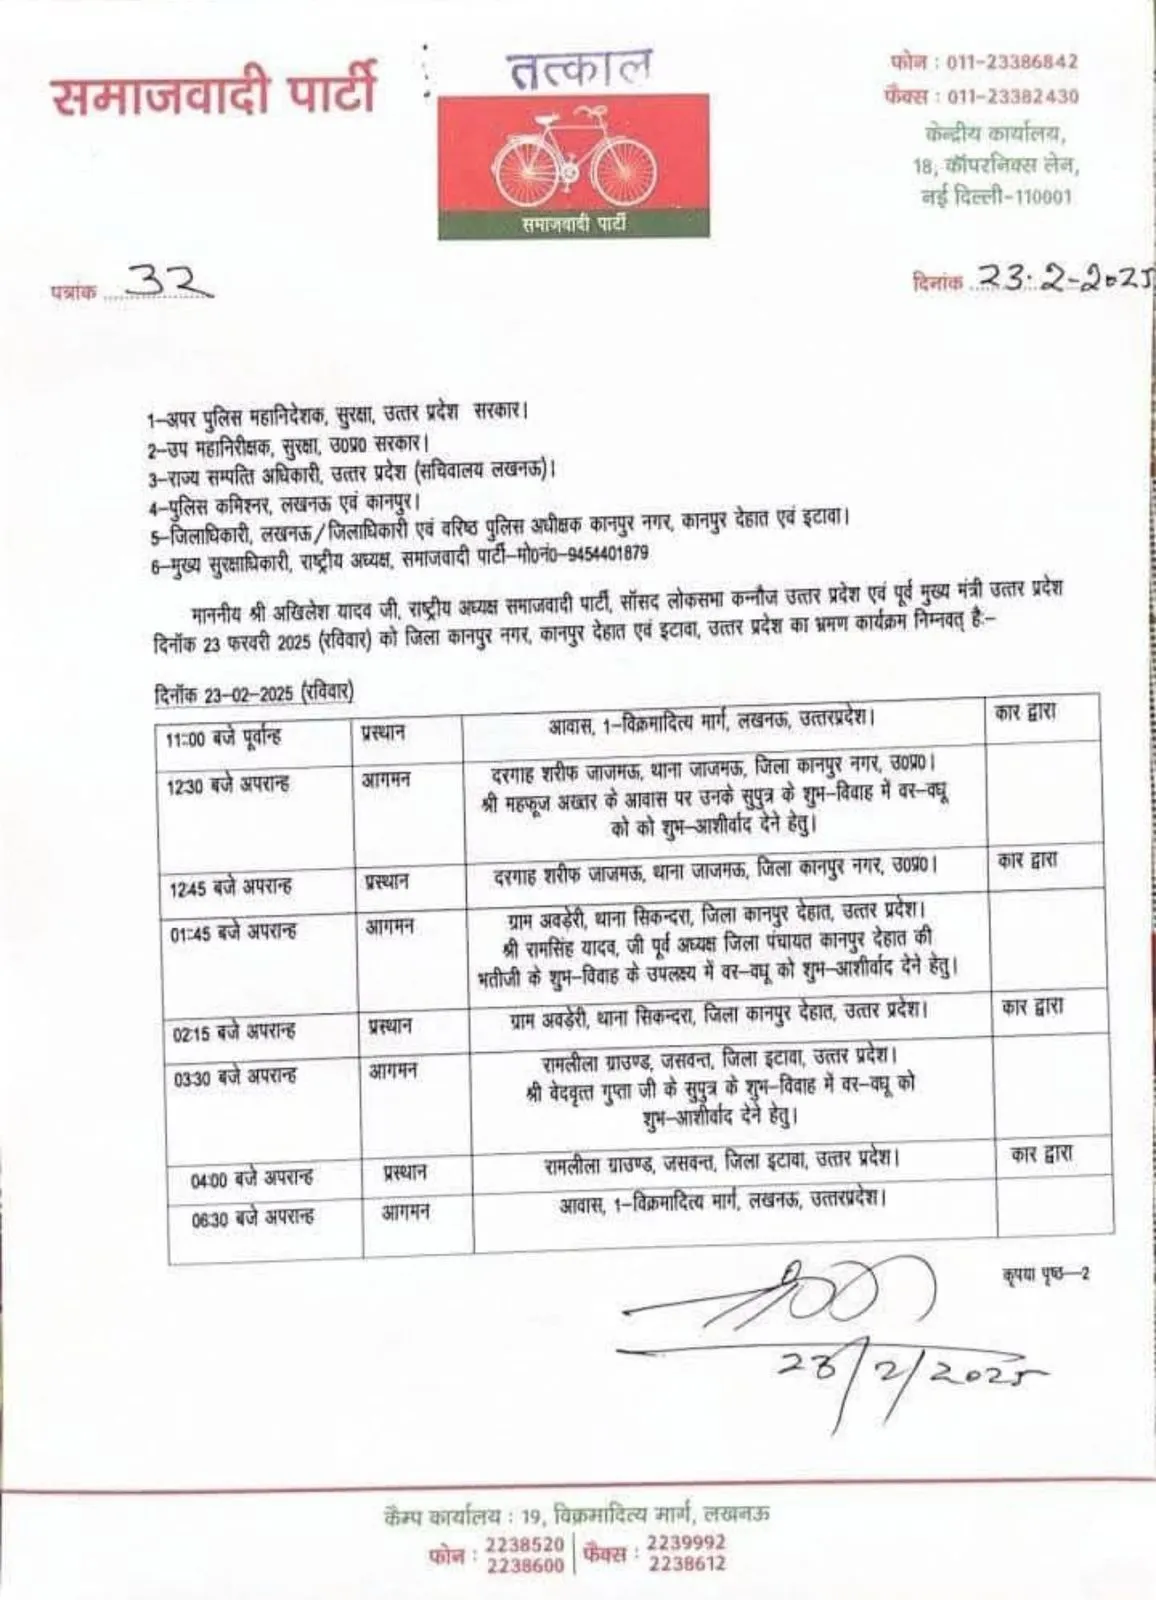 समाजवादी पार्टी
तत्काल
समाजवादी पार्टी
फोन : 011-23386842
फैक्स : 011-23382430
केन्द्रीय कार्यालय,
18, कॉपरनिक्स लेन,
नई दिल्ली-110001
पत्रांक 32
दिनांक 23.2-2025
1-अपर पुलिस महानिदेशक, सुरक्षा, उत्तर प्रदेश सरकार।
2-उप महानिरीक्षक, सुरक्षा, उ0प्र0 सरकार।
3-राज्य सम्पत्ति अधिकारी, उत्तर प्रदेश (सचिवालय लखनऊ)।
4-पुलिस कमिश्नर, लखनऊ एवं कानपुर।
5-जिलाधिकारी, लखनऊ/जिलाधिकारी एवं वरिष्ठ पुलिस अधीक्षक कानपुर नगर, कानपुर देहात एवं इटावा।
6-मुख्य सुरक्षाधिकारी, राष्ट्रीय अध्यक्ष, समाजवादी पार्टी-मो0नं0-9454401879
माननीय श्री अखिलेश यादव जी, राष्ट्रीय अध्यक्ष समाजवादी पार्टी, सॉसद लोकसभा कन्नौज उत्तर प्रदेश एवं पूर्व मुख्य मंत्री उत्तर प्रदेश
दिनॉक 23 फरवरी 2025 (रविवार) को जिला कानपुर नगर, कानपुर देहात एवं इटावा, उत्तर प्रदेश का भ्रमण कार्यक्रम निम्नवत् है:-
दिनॉक 23-02-2025 (रविवार)
11:00 बजे पूर्वान्ह प्रस्थान आवास, 1-विक्रमादित्य मार्ग, लखनऊ, उत्तरप्रदेश। कार द्वारा
12:30 बजे अपरान्ह आगमन दरगाह शरीफ जाजमऊ, थाना जाजमऊ, जिला कानपुर नगर, उ0प्र0।
श्री महफूज अख्तर के आवास पर उनके सुपुत्र के शुभ-विवाह में वर-वधू
को को शुभ-आशीर्वाद देने हेतु।
12:45 बजे अपरान्ह प्रस्थान दरगाह शरीफ जाजमऊ, थाना जाजमऊ, जिला कानपुर नगर, उ0प्र0। कार द्वारा
01:45 बजे अपरान्ह आगमन ग्राम अवड़ेरी, थाना सिकन्दरा, जिला कानपुर देहात, उत्तर प्रदेश।
श्री रामसिंह यादव, जी पूर्व अध्यक्ष जिला पंचायत कानपुर देहात की
भतीजी के शुभ-विवाह के उपलक्ष्य में वर-वधू को शुभ-आशीर्वाद देने हेतु।
02:15 बजे अपरान्ह प्रस्थान ग्राम अवड़ेरी, थाना सिकन्दरा, जिला कानपुर देहात, उत्तर प्रदेश। कार द्वारा
03:30 बजे अपरान्ह आगमन रामलीला ग्राउण्ड, जसवन्त, जिला इटावा, उत्तर प्रदेश।
श्री वेदवृत्त गुप्ता जी के सुपुत्र के शुभ-विवाह में वर-वधू को
शुभ-आशीर्वाद देने हेतु।
04:00 बजे अपरान्ह प्रस्थान रामलीला ग्राउण्ड, जसवन्त, जिला इटावा, उत्तर प्रदेश। कार द्वारा
06:30 बजे अपरान्ह आगमन आवास, 1-विक्रमादित्य मार्ग, लखनऊ, उत्तरप्रदेश।
कृपया पृष्ठ-2
23/2/2025
कैम्प कार्यालय : 19, विक्रमादित्य मार्ग, लखनऊ
फोन : 2238520 फैक्स : 2239992
2238600 2238612